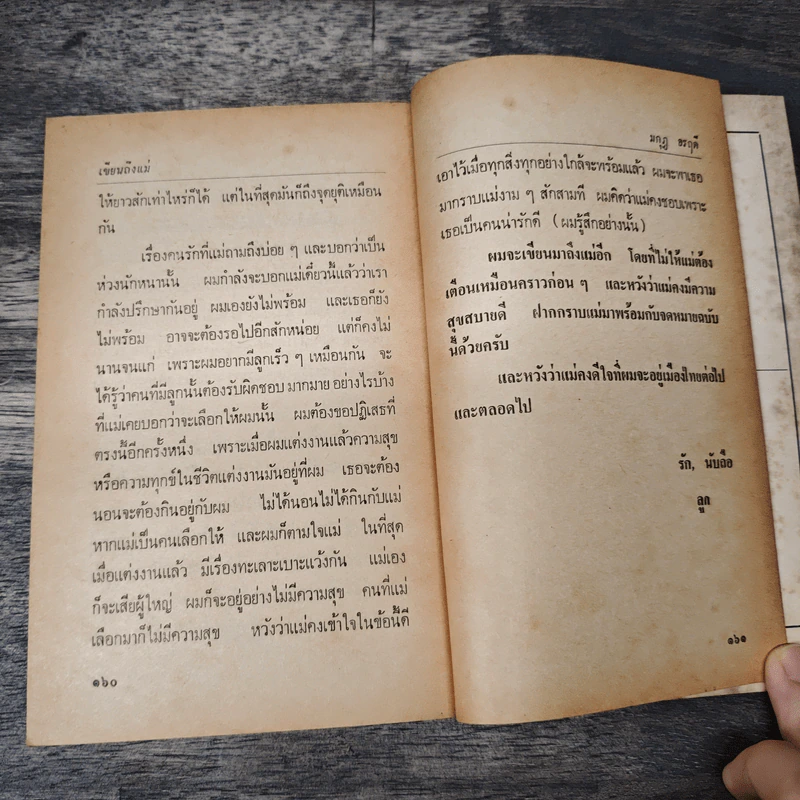 เขียนถึงแม่
ให้ยาวสักเท่าไหร่ก็ได้ แต่ในที่สุดมันก็ถึงจุดยุติเหมือน
กัน
เรื่องคนรักที่แม่ถามถึงบ่อย ๆ และบอกว่าเป็น
ห่วงนักหนานั้น ผมกำลังจะบอกแม่เดี๋ยวนี้แล้วว่าเรา
กำลังปรึกษากันอยู่ ผมเองยังไม่พร้อม และเธอก็ยัง
ไม่พร้อม อาจจะต้องรอไปอีกสักหน่อย แต่ก็คงไม่
นานจนแก่ เพราะผมอยากมีลูกเร็ว ๆ เหมือนกัน จะ
ได้รู้ว่าคนที่มีลูกนั้นต้องรับผิดชอบ มากมาย อย่างไรบ้าง
ที่แม่เคยบอกว่าจะเลือกให้ผมนั้น ผมต้องขอปฏิเสธที่
ตรงนี้อีกครั้งหนึ่ง เพราะเมื่อผมแต่งงานแล้วความสุข
หรือความทุกข์ในชีวิตแต่งงานมันอยู่ที่ผม เธอจะต้อง
นอนจะต้องกินอยู่กับผม ไม่ได้นอนไม่ได้กินกับแม่
หากแม่เป็นคนเลือกให้ และผมก็ตามใจแม่ ในที่สุด
เมื่อแต่งงานแล้ว มีเรื่องทะเลาะเบาะแว้งกัน แม่เอง
ก็จะเสียผู้ใหญ่ ผมก็จะอยู่อย่างไม่มีความสุข คนที่แม่
เลือกมาก็ไม่มีความสุข หวังว่าแม่คงเข้าใจในข้อนี้ดี
๑๖๐
มกุฎ อรฤดี
เอาไว้เมื่อทุกสิ่งทุกอย่างใกล้จะพร้อมแล้ว ผมจะพาเธอ
มากราบแม่งาม ๆ สักสามที ผมคิดว่าแม่คงชอบเพราะ
เธอเป็นคนน่ารักดี (ผมรู้สึกอย่างนั้น)
ผมจะเขียนมาถึงแม่อีก โดยที่ไม่ให้แม่ต้อง
เตือนเหมือนคราวก่อน ๆ และหวังว่าแม่คงมีความ
สุขสบายดี ฝากกราบแม่มาพร้อมกับจดหมายฉบับ
นี้ด้วยครับ
และหวังว่าแม่คงดีใจที่ผมจะอยู่เมืองไทยต่อไป
และตลอดไป
รัก, นับถือ
ลูก
๑๖๑